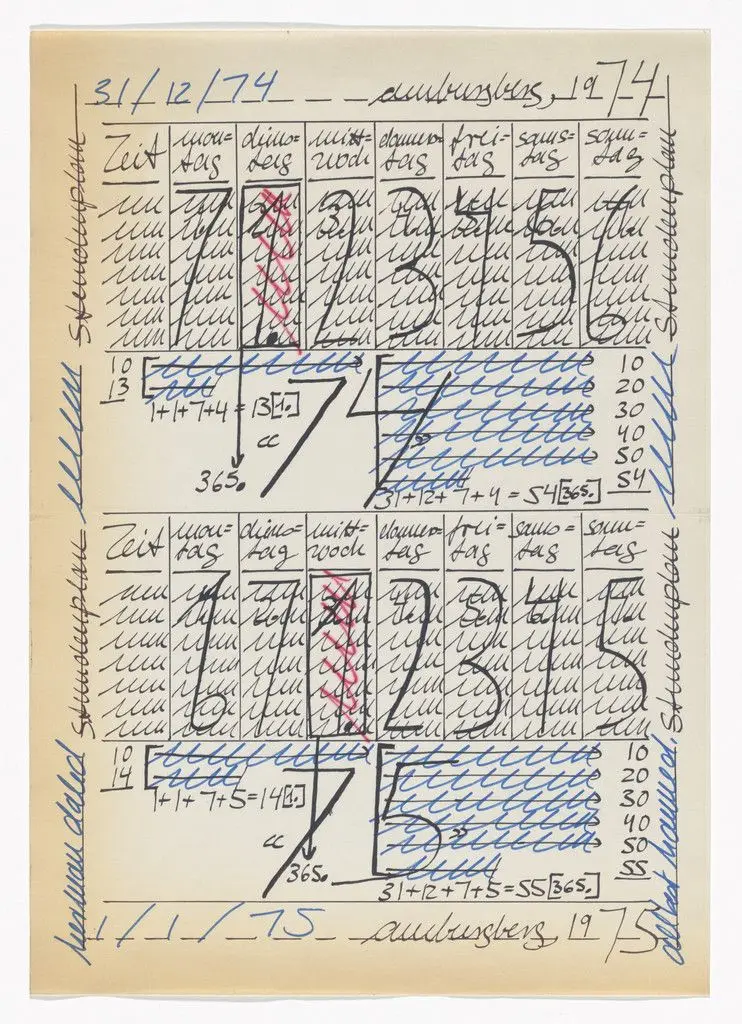 31/12/74 amburgberg, 1974
Stundenplan
Stundenplan
Zeit mon=tag diens=tag mitt=woch donners=tag frei=tag sams=tag sonn=tag
7 1. 2 3 4 5 6
10
13
1+1+7+4=13[1.]
«
365.
74
»
10
20
30
40
50
54
31+12+7+4=54[365.]
Stundenplan
Stundenplan
Zeit mon=tag diens=tag mitt=woch donners=tag frei=tag sams=tag sonn=tag
6 7 1. 2 3 4 5
10
14
1+1+7+5=14[1.]
«
365.
75
»
10
20
30
40
50
55
31+12+7+5=55[365.]
hanne darboven
1/1/75 amburgberg, 1975